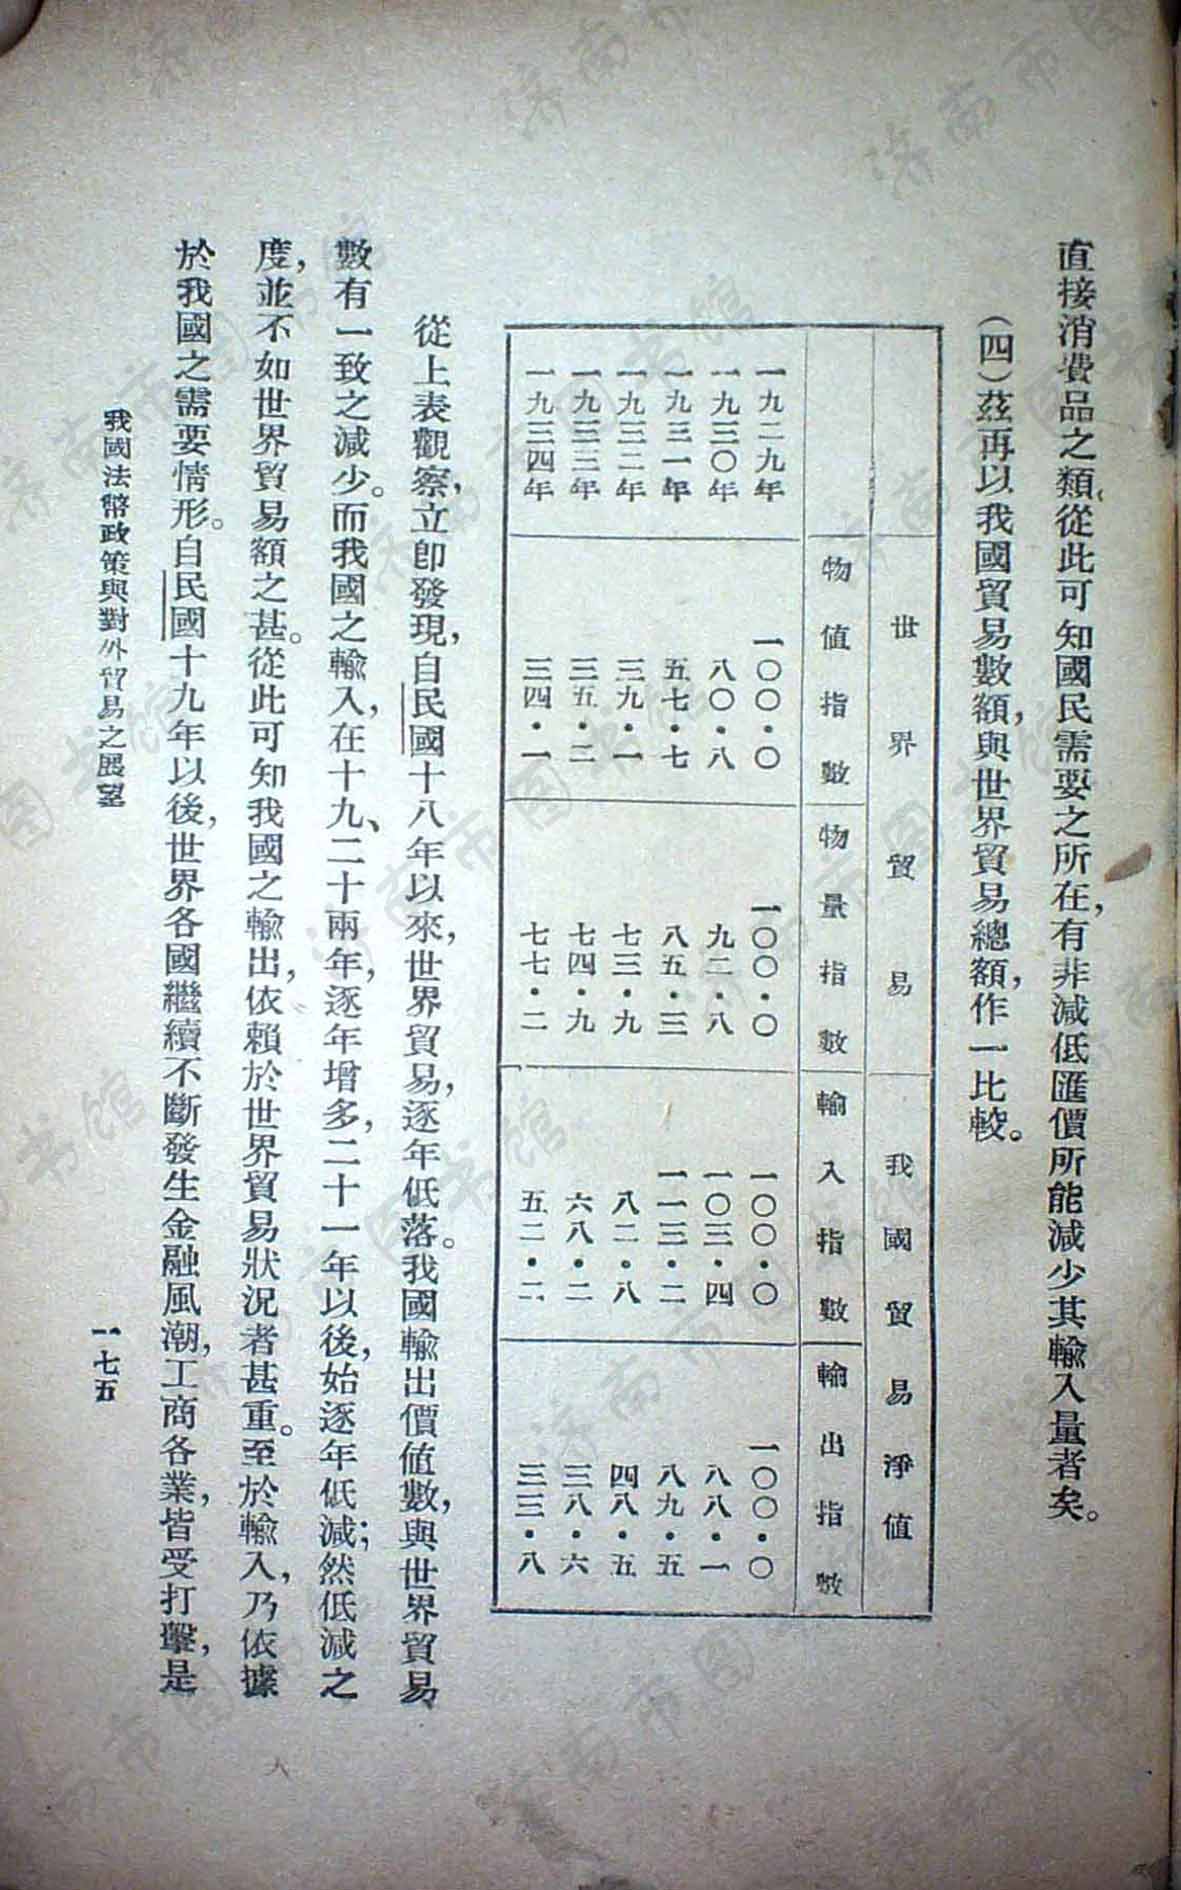 直接消費品之類，從此可知國民需要之所在，有非減低匯價所能減少其輸入量者矣。
（四）茲再以我國貿易數額，與世界貿易總額，作一比較。
世界貿易　我國貿易淨值
物值指數　物量指數　輸入指數　輸出指數
一九二九年　一〇〇・〇　一〇〇・〇　一〇〇・〇　一〇〇・〇
一九三〇年　八〇・八　九二・八　一〇三・四　八八・一
一九三一年　五七・七　八五・三　一一三・二　八九・五
一九三二年　三九・一　七三・九　八二・八　四八・五
一九三三年　三五・二　七四・九　六八・二　三八・六
一九三四年　三四・一　七七・二　五二・二　三三・八
從上表觀察，立卽發現，自民國十八年以來，世界貿易，逐年低落。我國輸出價值數，與世界貿易
數有一致之減少。而我國之輸入，在十九、二十兩年，逐年增多，二十一年以後，始逐年低減；然低減之
度，並不如世界貿易額之甚。從此可知我國之輸出，依賴於世界貿易狀況者甚重。至於輸入，乃依據
於我國之需要情形。自民國十九年以後，世界各國繼續不斷發生金融風潮，工商各業，皆受打擊，是
我國法幣政策與對外貿易之展望
一七五
济南市图书馆